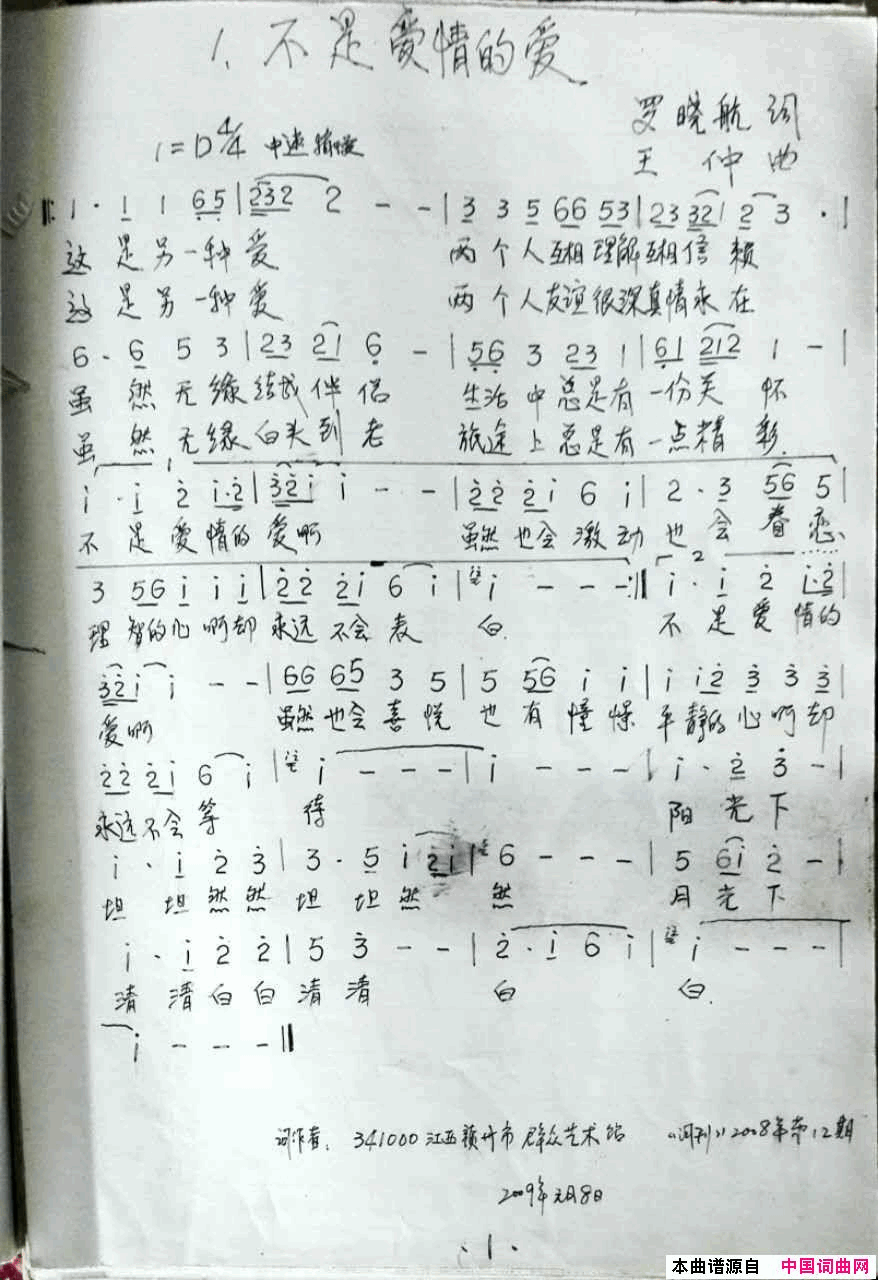 1、不是爱情的爱
罗晓航 词
1=D 4/4 中速 稍慢
王 仲 曲
‖: 1 · 1 1 6 5 | 2 3 2 2 - - | 3 3 5 6 6 5 3 | 2 3 3 2 1 2 3 · |
这是另一种爱 两个人互相理解互相信赖
这是另一种爱 两个人友谊很深真情永在
6 · 6 5 3 | 2 3 2 1 6 - | 5 6 3 2 3 1 | 6 1 2 1 2 1 - |
虽然无缘结成伴侣 生活中总是有一份关怀
虽然无缘白头到老 旅途上总是有一点精彩
1
i · i 2 i · 2 | 3 2 i i - - | 2 2 2 i 6 i | 2 · 3 5 6 5 |
不是爱情的爱啊 虽然也会激动也会眷恋
2
3 5 6 i i i | 2 2 2 i 6 i | i - - - :‖ i · i 2 i · 2 |
理智的心啊却永远不会表白 不是爱情的
3 2 i i - - | 6 6 6 5 3 5 | 5 5 6 i i | i i 2 3 3 3 |
爱啊 虽然也会喜悦也有憧憬平静的心啊却
2 2 2 i 6 i | i - - - | i - - - | i · 2 3 - |
永远不会等待 阳光下
i · i 2 3 | 3 · 5 i 2 i | 6 - - - | 5 6 i 2 - |
坦坦然然坦坦然然 月光下
i · i 2 2 | 5 3 - - | 2 · i 6 i | i - - - |
清清白白清清白白
i - - - ‖
词作者: 341000江西赣州市群众艺术馆 《词刊》2008年第12期
2009年元月8日
·1·
本曲谱源自 中国词曲网